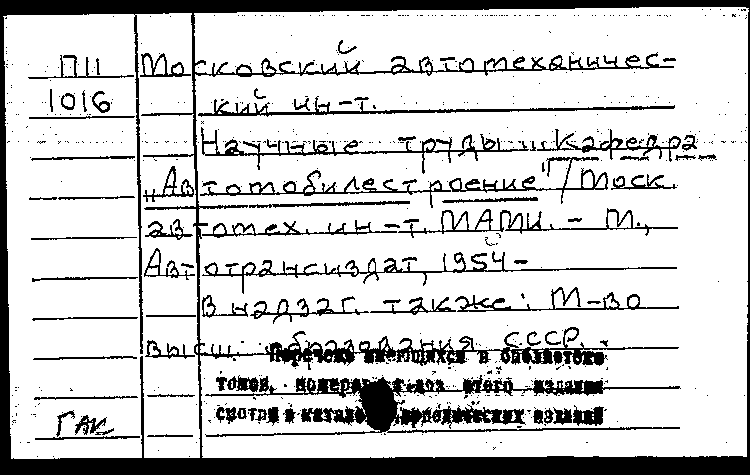 П11 Московский автомеханичес-
1016 кий ин-т.
Научные труды... Кафедра
„Автомобилестроение"/Моск.
автомех. ин-т. МАМИ. - М.,
Автотрансиздат, 1954-
В надзаг. также: М-во
высш. образования СССР.
Перечень имеющихся в библиотеке
томов, номеров этого издания
смотри в каталоге периодических изданий
ГАК